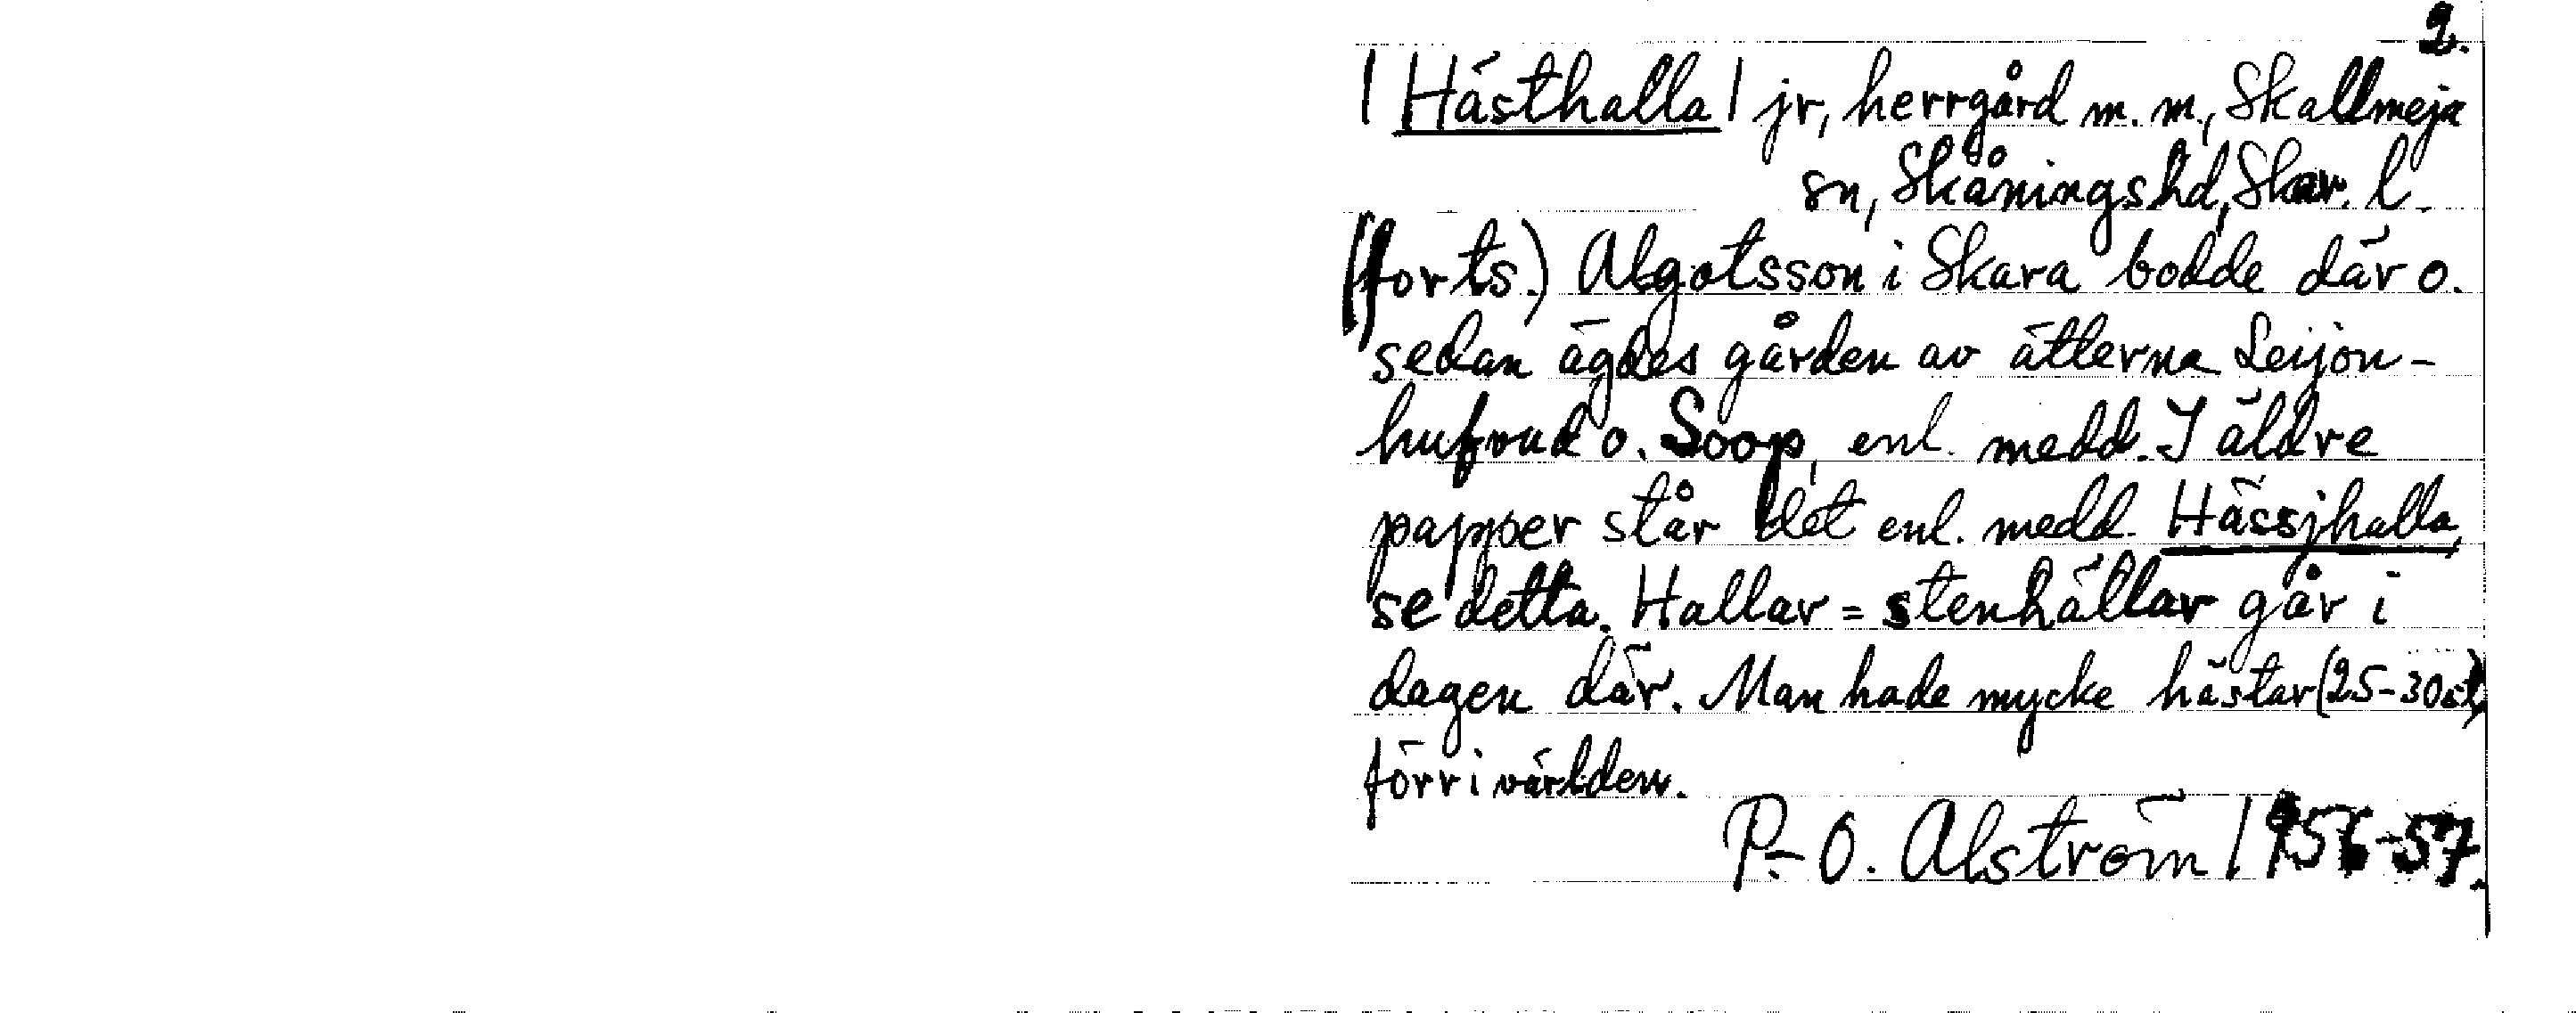 2.
| Hästhalla | jr, herrgård m. m., Skallmeja
sn, Skånings hd, Skar. l.
(forts.) Algotsson i Skara bodde där o.
sedan ägdes gården av ätterna Leijon-
hufvud o. Soop, enl. medd. I äldre
papper står det enl. medd. Hässjhalla,
se detta. Hallar = stenhällar går i
dagen där. Man hade mycke hästar (25-30 st)
förr i världen.
P.-O. Alström 1956-57.